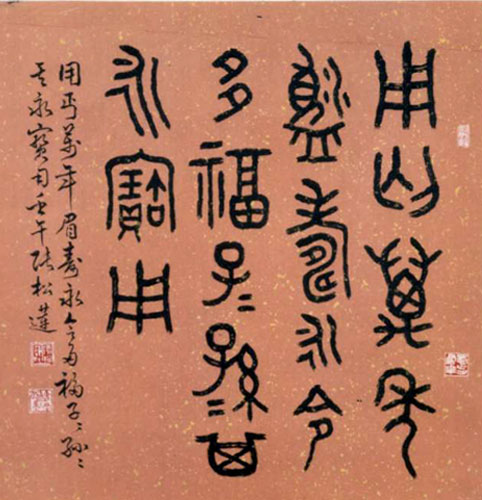 用丐萬年
眉壽永令
多福子=孫=其
永寶用
用丐萬年眉壽永令多福子〻孫〻
其永寶用壬午張松蓮